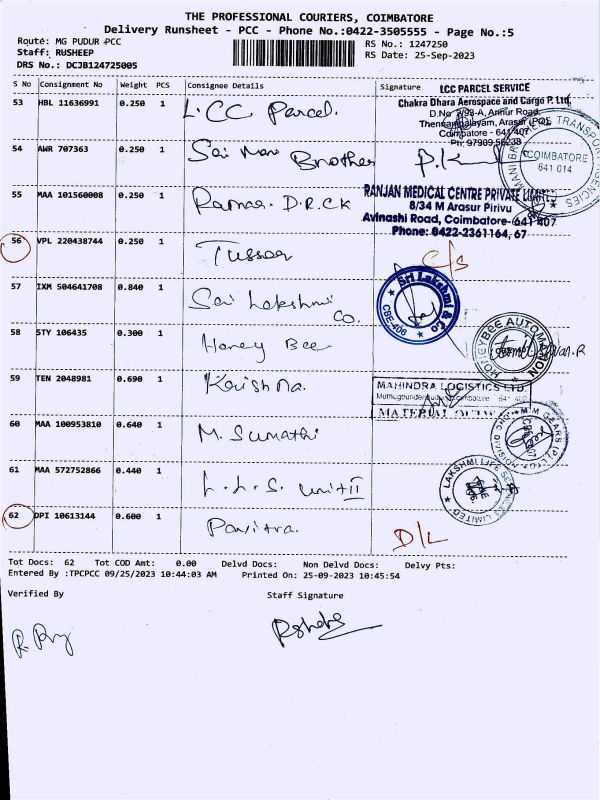 THE PROFESSIONAL COURIERS, COIMBATORE
Delivery Runsheet - PCC - Phone No.:0422-3505555 - Page No.:5
Route: MG PUDUR-PCC
Staff: RUSHEEP
DRS No.: DCJB124725005
RS No.: 1247250
RS Date: 25-Sep-2023
S No Consignment No Weight PCS Consignee Details Signature
53 HBL 11636991 0.250 1 L.CC Parcel.
LCC PARCEL SERVICE
Chakra Dhara Aerospace and Cargo P. Ltd,
D.No 7/93-A, Annur Road,
Thennampalayam, Arasur (PO),
Coimbatore - 641 407
54 AWR 707363 0.250 1 Sai Brother
COIMBATORE
641 014
55 MAA 101560008 0.250 1 Ramas. D.R.C.K
RANJAN MEDICAL CENTRE PRIVATE LIMITED
8/34 M Arasur Pirivu
Avinashi Road, Coimbatore-641 407
Phone: 0422-2361164, 67
56 VPL 220438744 0.250 1 Tussar C/s
57 IXM 504641708 0.840 1 Sai Lakshmi
Co.
Sri Lakshmi & Co
CBE-406
58 STY 106435 0.300 1 Honey Bee
HONEYBEE AUTOMATION
59 TEN 2048981 0.690 1 Krishna.
MAHINDRA LOGISTICS LTD.
60 MAA 100953810 0.640 1 M. Sumathi
M.M GEARS (P) LTD
61 MAA 572752866 0.440 1 L.L.S. Unit II
LAKSHMI LIFE LIMITED
62 DPI 10613144 0.600 1 Pavitra. D/L
Tot Docs: 62 Tot COD Amt: 0.00 Delvd Docs: Non Delvd Docs: Delvy Pts:
Entered By :TPCPCC 09/25/2023 10:44:03 AM Printed On: 25-09-2023 10:45:54
Verified By Staff Signature